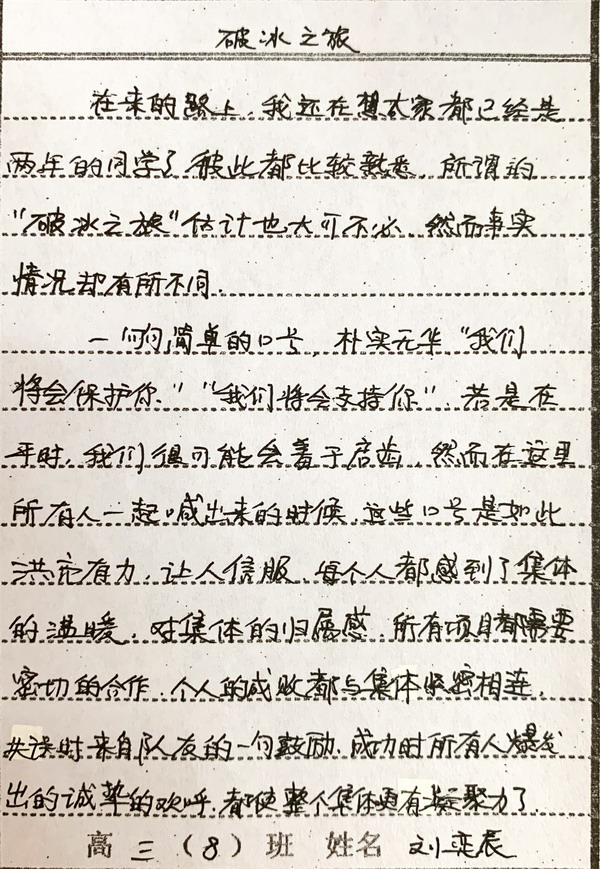 破冰之旅
在来的路上,我还在想大家都已经是
两年的同学了,彼此都比较熟悉,所谓的
"破冰之旅"估计也大可不必,然而事实
情况却有所不同.
一句句简单的口号,朴实无华"我们
将会保护你.""我们将会支持你".若是在
平时,我们很可能会羞于启齿,然而在这里
所有人一起喊出来的时候,这些口号是如此
洪亮有力,让人信服,每个人都感到了集体
的温暖,对集体的归属感,所有项目都需要
密切的合作,个人的成败都与集体紧密相连,
失误时来自队友的一句鼓励,成功时所有人爆发
出的诚挚的欢呼,都使整个集体更有凝聚力了.
高三(8)班 姓名 刘奕辰